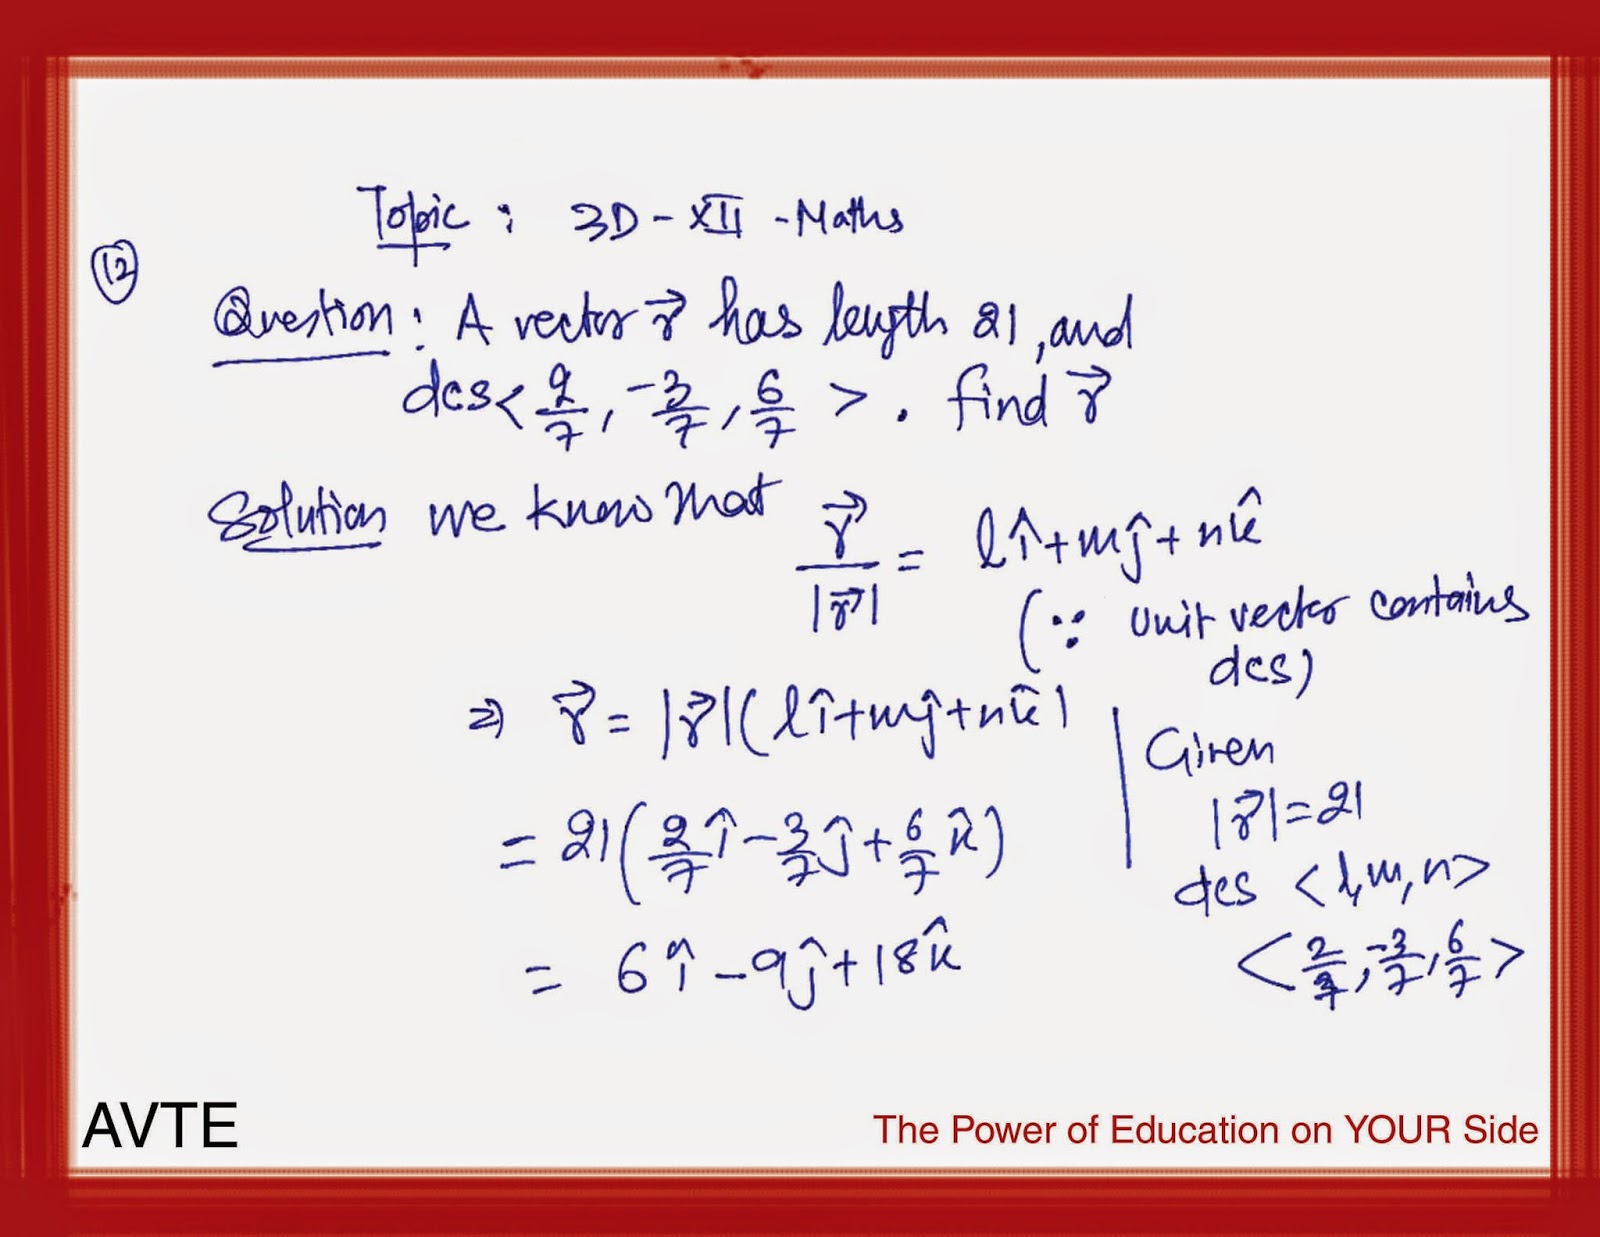 Topic : 3D - XII - Maths
12
Question : A vector r⃗ has length 21, and
dcs < 2/7, -3/7, 6/7 > . find r⃗
Solution we know that r⃗/|r⃗| = lî + mĵ + nk̂
(∵ unit vector contains
dcs)
⇒ r⃗ = |r⃗| (lî + mĵ + nk̂)
Given
|r⃗| = 21
= 21 ( 2/7 î - 3/7 ĵ + 6/7 k̂ )
dcs < l, m, n >
< 2/7, -3/7, 6/7 >
= 6î - 9ĵ + 18k̂
AVTE
The Power of Education on YOUR Side